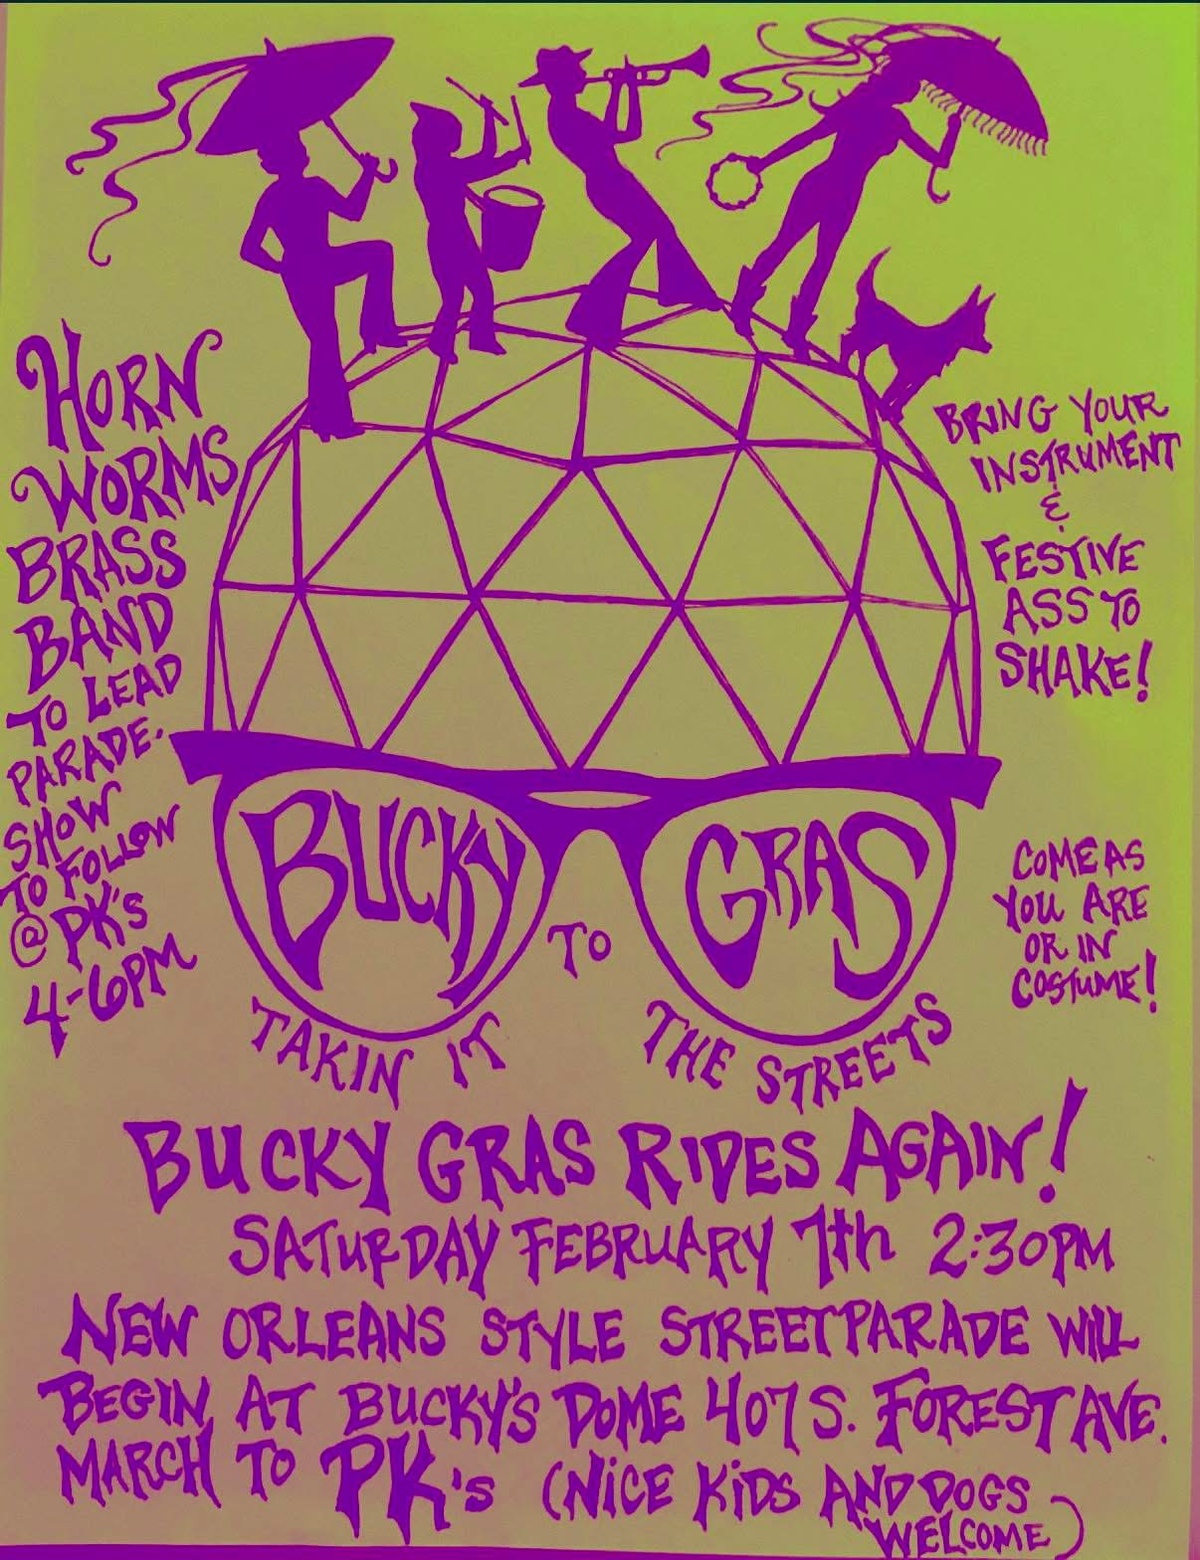 HORN
WORMS
BRASS
BAND
TO LEAD
PARADE.
SHOW
TO FOLLOW
@ PK's
4-6PM
BRING YOUR
INSTRUMENT
&
FESTIVE
ASS TO
SHAKE!
COME AS
YOU ARE
OR IN
COSTUME!
BUCKY GRAS
TAKIN IT TO THE STREETS
BUCKY GRAS RIDES AGAIN!
SATURDAY FEBRUARY 7th 2:30PM
NEW ORLEANS STYLE STREETPARADE WILL
BEGIN AT BUCKY'S DOME 407 S. FOREST AVE.
MARCH TO PK's (NICE KIDS AND DOGS
WELCOME)